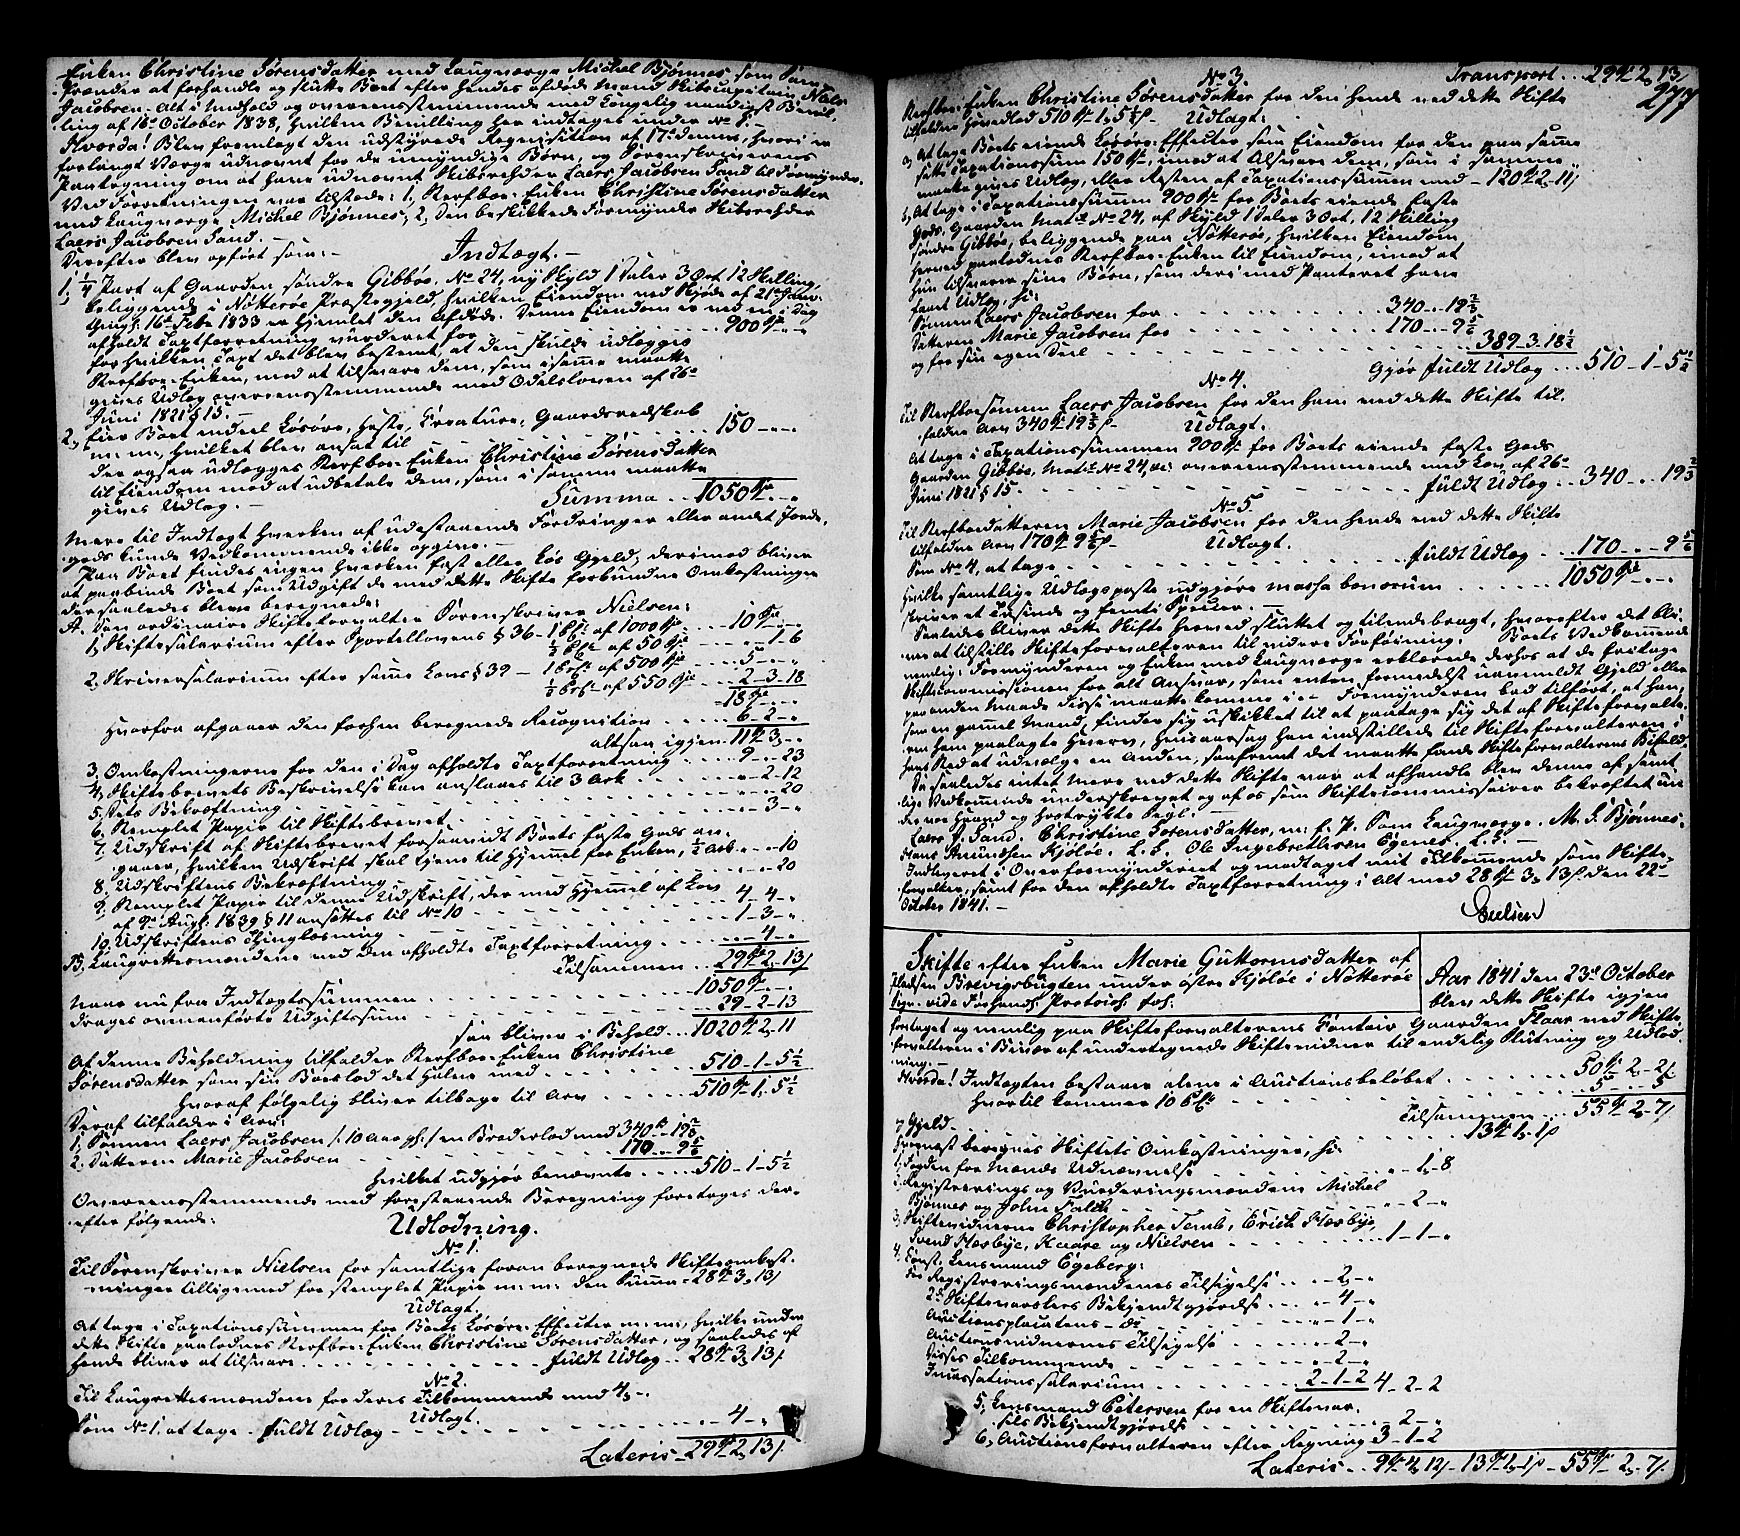 Enken Christine Sørensdatter med Laugværge Michel Bjønnes, som Sam-
frænder at forhandle og slutte Boet efter hendes afdøde Mand Skibscapitain Niels
Jacobsen. Alt i Medhold og overeensstemmende med Kongelig naadigst Bevil-
ling af 16de October 1838, hvilken Bevilling her indtages under No 1.
Hvorda! Blev fremlagt den udstyrede Requisition af 17de dennes, hvori er
forlangt Værge udnævnt for de umyndige Børn, og Sorenskriverens
Paategning om at have udnævnt Skibsrehder Laers Jacobsen Sand til Formynder.
Ved Forretningen var tilstede: 1, Sterfboe-Enken Christine Sørensdatter
med Laugværge Michel Bjønnes, 2, Den beskikkede Formynder Skibsrehder
Laers Jacobsen Sand. —
Derefter blev opført som:
Indtægt. —
1, 1/4 Part af Gaarden søndre Gibbøe, No 24, ny Skyld 1 Daler 3 Ort 12 Skilling,
beliggende i Nøtterøe Præstegjeld, hvilken Eiendom ved Skjøde af 21de Janu.
tingl. 16de Febr 1833 er hjemlet den Afdøde. Denne Eiendom er ved en i Dag
afholdt Taxtforretning vurderet for . . . 900 Spd „ „
for hvilken Taxt det blev bestemt, at den skulde udlægges
Sterfboe-Enken, mod at tilsvare dem, som i samme maatte
gives Udlæg overeensstemmende med Odelsloven af 26de
Juni 1821 § 15. —
2, Eier Boet endeel Løsøre, Heste, Creature, Gaardsredskab
m: m:, hvilket blev ansat til . . . 150 — „ — „
der ogsaa udlægges Sterfboe-Enken Christine Sørensdatter
til Eiendom mod at udbetale dem, som i samme maatte
gives Udlæg. —
Summa . . 1050 Spd „ „
Mere til Indtægt hverken af udestaaende Fordringer eller andet Jorde-
gods kunde Vedkommende ikke opgive. —
Paa Boet findes ingen hverken fast eller løs Gjeld; derimod bliver
at paabinde Boet som Udgift de med dette Skifte forbundne Omkostninger
der saaledes bleve beregnede:
A. Den ordinaire Skifteforvalter Sorenskriver Nielsen:
1, Skiftesalarium efter Sportellovens § 36 – 1 pCt af 1000 Spd . . . 10 Spd „ „
1/2 pCt af 50 Spd . . . „ – 1 – 6
2, Skriversalarium efter samme Lovs § 39 — 1 Ort af 500 Spd . . . 5 – „ „
1/2 Ort af 550 Spd . . . 2 – 3 – 18
18 Spd „ „
Hvorfra afgaaer den forhen beregnede Recognition . . . 6 – 2 – „
altsaa igjen 11 Spd 3 „ „
3, Omkostningerne for den i Dag afholdte Taxtforretning . . . 9 – „ – 23
4, Skiftebrevets Beskrivelse kan anslaaes til 3 Ark . . . „ – 2 – 12
5, Dets Bekræftning . . . „ „ 20
6, Stemplet Papir til Skiftebrevet . . . „ – 3 – „
7, Udskrift af Skiftebrevet forsaavidt Boets faste Gods an-
gaaer, hvilken Udskrift skal tjene til Hjemmel for Enken, 1/2 Ark . . „ „ 10
8. Udskriftens Bekræftning . . . „ „ 20
9, Stemplet Papir til denne Udskrift, der med Hjemmel af Lov
af 9de Augt. 1839 § 11 ansættes til No 10 . . . 4 – 4 – „
10, Udskriftens Thinglæsning . . . 1 – 3 – „
B, Laugrettesmændene ved den afholdte Taxtforretning . . . „ – 4 – „
Tilsammen . . 29 Spd 2, 13 s
Naar nu fra Indtægtssummen . . . 1050 Spd „ „
drages ovenanførte Udgiftssum . . . 29 – 2 – 13
saa bliver i Behold . . 1020 Spd 2 „ 11
Af denne Beholdning tilfalder Sterfboe-Enken Christine
Sørensdatter som sin Boeslod det Halve med . . . 510 – 1 – 5 1/2
Hvoraf følgelig bliver tilbage til Arv . . . 510 Spd 1, 5 1/2
Deraf tilfalder i Arv:
1, Sønnen Laers Jacobsen /: 10 Aar :/ en Broderlod med 340 Spd „ 19 2/3
2, Datteren Marie Jacobsen . . . 170 „ 9 5/6
hvilket udgjør benævnte . . . 510 – 1 – 5 1/2
Overeensstemmende med forestaaende Beregning foretoges der-
efter følgende:
Udlodning.
No 1.
Til Sorenskriver Nielsen for samtlige foran beregnede Skifteomkost-
ninger tilligemed for stemplet Papir m: m: den Summa – 28 Spd 3, 13 s
Udlagt.
At tage i Taxationssummen for Boets Løsøre-Effecter m: m:, hvilke under
dette Skifte paalodnes Sterfboe-Enken Christine Sørensdatter, og saaledes af
hende bliver at tilsvare . . . fuldt Udlæg . . 28 Spd 3, 13 s
No 2.
Til Laugrettesmændene for deres Tilkommende med 4 „ –
Udlagt.
Som No 1. at tage . fuldt Udlæg . . . „ – 4 – „
Lateris – 29 Spd 2, 13 s
Transport . . 29 Spd 2, 13 s
277
No 3.
Sterfboe-Enken Christine Sørensdatter for den hende ved dette Skifte
tilfaldne Hovedlod 510 Spd 1, 5 1/2 s – Udlagt:
a, At tage Boets eiende Løsøre-Effecter som Eiendom for den paa samme
satte Taxationssum 150 Spd, imod at tilsvare dem, som i samme
maatte gives Udlæg, eller Resten af Taxationssummen med – 120 Spd 2 „ 11 s
b, At tage i Taxationssummen 900 Spd for Boets eiende faste
Gods, Gaarden Mat: No 24, af Skyld 1 Daler 3 Ort 12 Skilling
søndre Gibbøe, beliggende paa Nøtterøe, hvilken Eiendom
herved paalodnes Sterfboe-Enken til Eiendom, imod at
hun tilsvarer sine Børn, som deri med Panteret have
faaet Udlæg, for
Sønnen Laers Jacobsen for . . . 340 „ 19 2/3
Datteren Marie Jacobsen for . . . 170 – „ 9 5/6
og for sin egen Deel . . . 389 – 3 – 18 1/2
Gjør fuldt Udlæg . . . 510 – 1 – 5 1/2
No 4.
Til Sterfboesønnen Laers Jacobsen for den ham ved dette Skifte til-
faldne Arv 340 Spd 19 2/3 s – Udlagt.
At tage i Taxationssummen 900 Spd for Boets eiende faste Gods
Gaarden Gibbøe, Mat: No 24, &c: overeensstemmende med Lov af 26de
Juni 1821 § 15. . . . fuldt Udlæg . . 340 „ 19 2/3
No 5.
Til Sterfboedatteren Marie Jacobsen for den hende ved dette Skifte
tilfaldne Arv 170 Spd 9 5/6 s – Udlagt.
Som No 4, at tage . . . fuldt Udlæg . . . 170 „ 9 5/6
Hvilke samtlige Udlægsposte udgjøre massa bonorum . . . 1050 Spd „ „
skriver et Tusinde og femti Species. —
Saaledes bliver dette Skifte herved sluttet og tilendebragt, hvorefter det bli-
ver at tilstille Skifteforvalteren til videre Forføining. Boets Vedkommende
nemlig: Formynderen og Enken med Laugværge erklærede derhos at de fritage
Skiftecommissionen for alt Ansvar, som enten formedelst uanmeldt Gjeld eller
paa anden Maade disse maatte komme i. — Formynderen bad tilført, at han,
som en gammel Mand, finder sig uskikket til at paatage sig det af Skifteforvalte-
ren ham paalagte Hverv, hvisaarsag han indstillede til Skifteforvalteren i
hans Sted at udvælge en Anden, saafremt det maatte finde Skifteforvalterens Bifald.
Da saaledes intet Mere ved dette Skifte var at afhandle blev denne af samt-
lige Vedkommende underskrevet og af os som Skiftecommissairer bekræftet un-
der vor Haand og hostrykte Segl. —
Laers J. Sand. Christine Sørensdatter, m. f. P. Som Laugværge. M. J. Bjønnes.
Hans Amundsen Kjøløe. L. S. Ole Ingebrethsen Egenes. L. S. —
Indleveret i Overformynderiet og modtaget mit Tilkommende som Skifte-
forvalter, samt for den afholdte Taxtforretning i Alt med 28 Spd 3, 13 s den 22de
October 1841. —
Nielsen
Skifte efter Enken Marie Guttormsdatter af
Pladsen Brevigsbugten under østre Kjøløe i Nøtterøe
Sogn – vide Forhands: Protocol fol:
Aar 1841 den 23de October
blev dette Skifte igjen
foretaget og nemlig paa Skifteforvalterens Contoir Gaarden Flaar ved Skifte-
forvalteren i Bivær af undertegnede Skiftevidner til endelig Slutning og Udlod-
ning —
Hvorda! Indtægten bestaaer alene i Auctionsbeløbet . . . 50 Spd 2 – 2 s
hvortil kommer 10 pCt . . . 5 – „ – 5
Tilsammen . . 55 Spd 2 – 7 s
Gjeld . . . 13 Spd 1, 1 s
Hvornæst beregnes Skiftets Omkostninger, for
1, Fogden for Mænds Udnævnelse . . . „ – 1 – 8
2, Registrerings og Vurderingsmændene Michel
Bjønnes og John Falch . . . „ – 2 – „
3, Skiftevidnerne Christopher Temb, Erich Hesbye,
Svend Hesbye, Kaare og Nielsen . . . 1 – 1 – „
4, Const. Lensmand Egeberg:
for Registreringsmændenes Tilsigelse . . „ – 2 – „
2de Skiftevarslers Bekjendtgjørelse . . . „ – 4 – „
Auctionsplacatens – do . . . „ – 1 – „
Auctionsvidnernes Tilsigelse . . . „ – 2 – „
Disses Tilkommende . . . „ – 2 – „
Incassationssalarium . . . 2 – 1 – 2 4 – 2 – 2
5, Lensmand Petersen for en Skiftevar-
sels Bekjendtgjørelse . . . „ – 2 – „
6, Auctionsforvalteren efter Regning 3 – 1 – 2
Lateris . . 9 Spd 4, 12 s – 13 Spd 1, 1 s – 55 Spd 2, 7 s